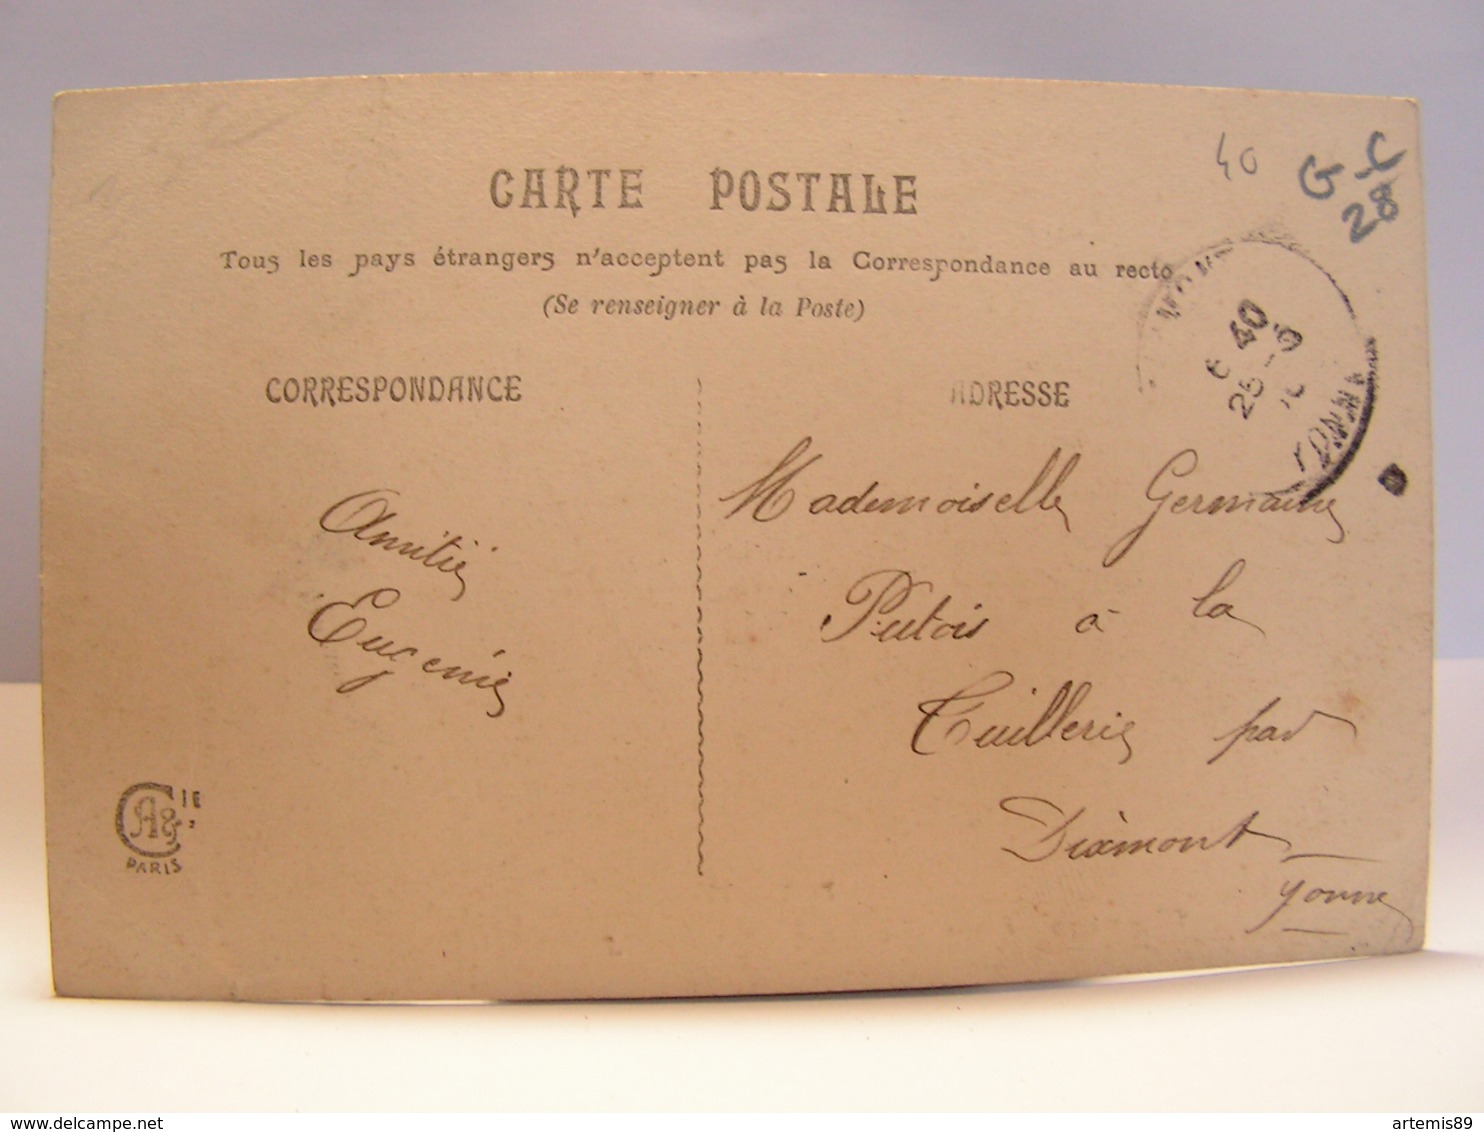 40
G-C
28
CARTE POSTALE
Tous les pays étrangers n'acceptent pas la Correspondance au recto
(Se renseigner à la Poste)
CORRESPONDANCE
ADRESSE
6 40
25 -9
YONNE
Amitié
Eugénie
Mademoiselle Germaine
Putois à la
Tuillerie par
Dixmont
Yonne
A & CIE
PARIS
delcampe.net
artemis89